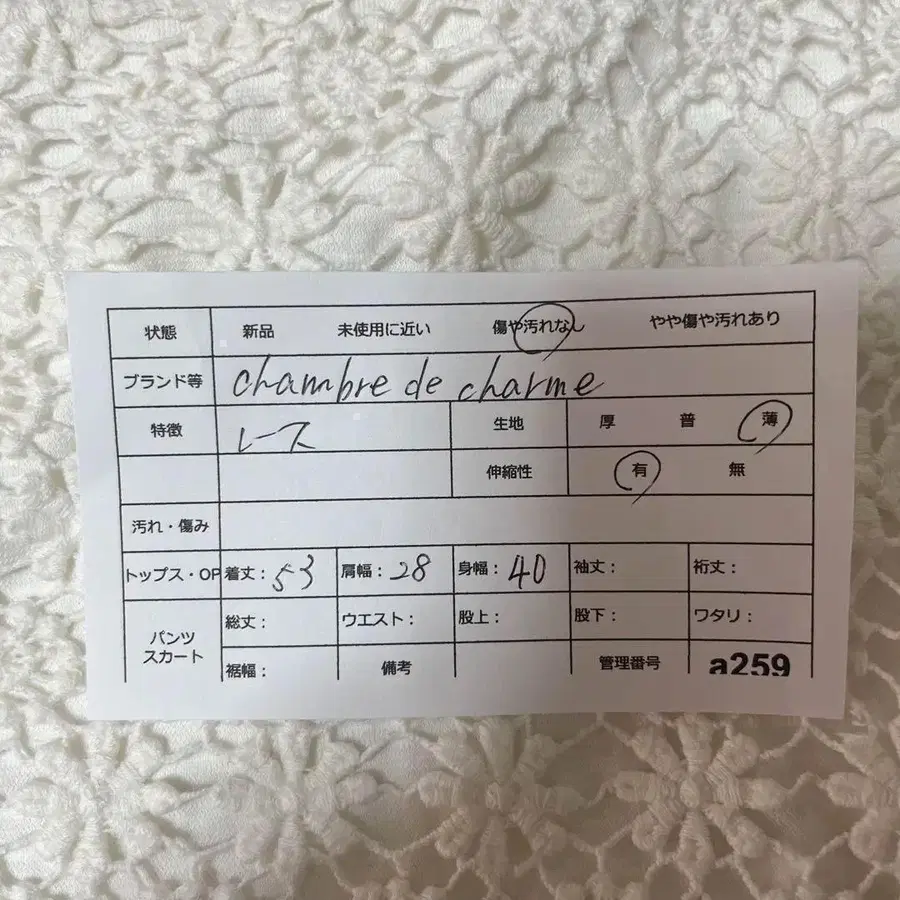 状態 新品 未使用に近い 傷や汚れなし やや傷や汚れあり
ブランド等 chambre de charme
特徴 レース 生地 厚 普 薄
伸縮性 有 無
汚れ・傷み
トップス・OP 着丈: 53 肩幅: 28 身幅: 40 袖丈: 裄丈:
パンツ スカート 総丈: ウエスト: 股上: 股下: ワタリ:
裾幅: 備考 管理番号 a259